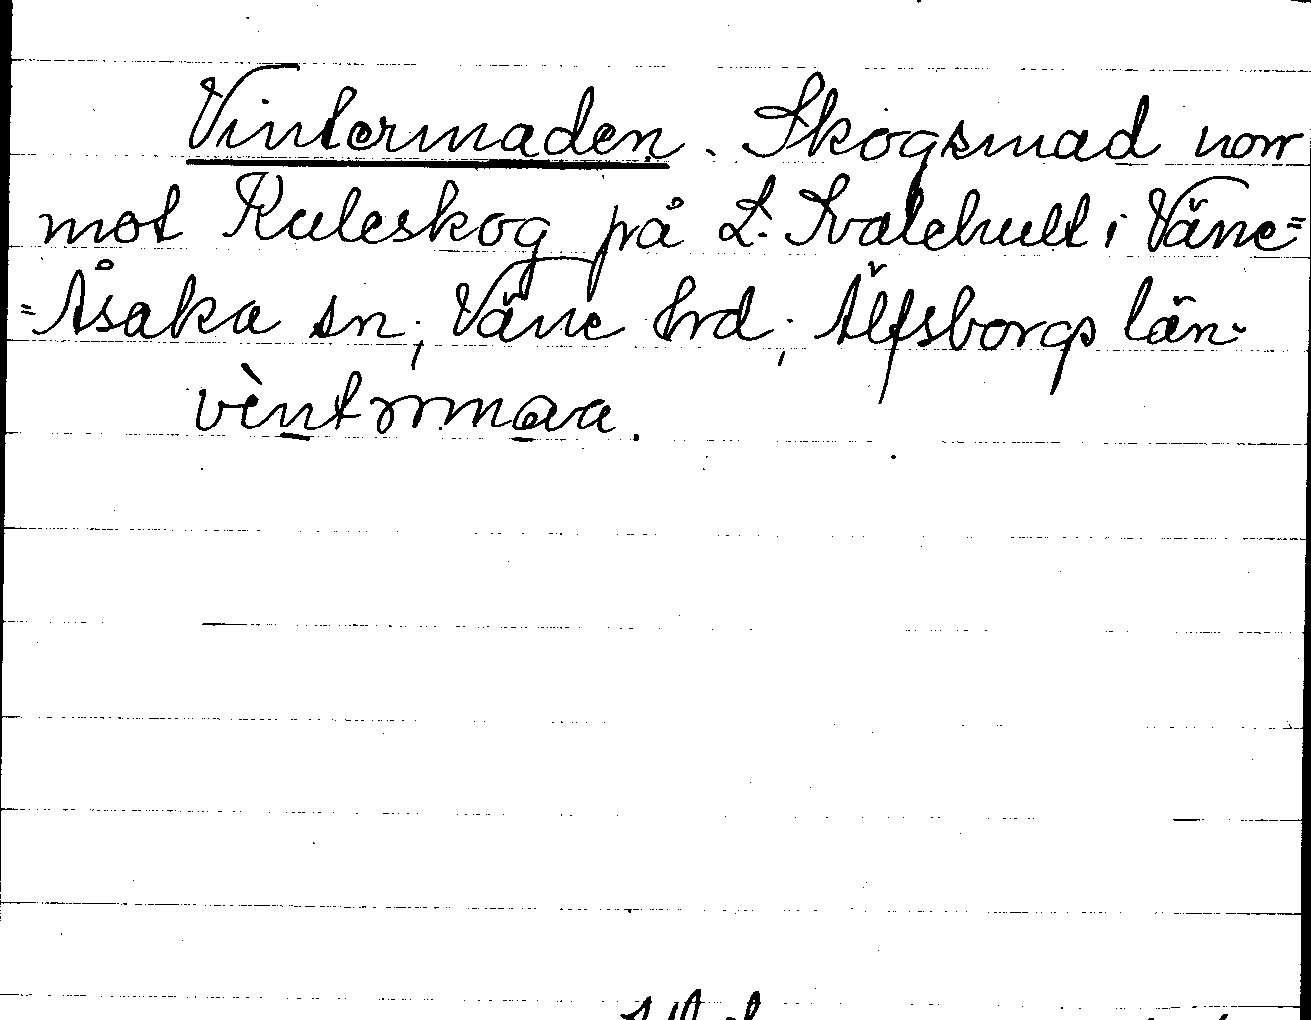 Vintermaden. Skogsmad norr
mot Kuleskog på L. Svalehult i Väne=
=Åsaka sn, Väne hrd, Älfsborgs län.
vèntrmaa.